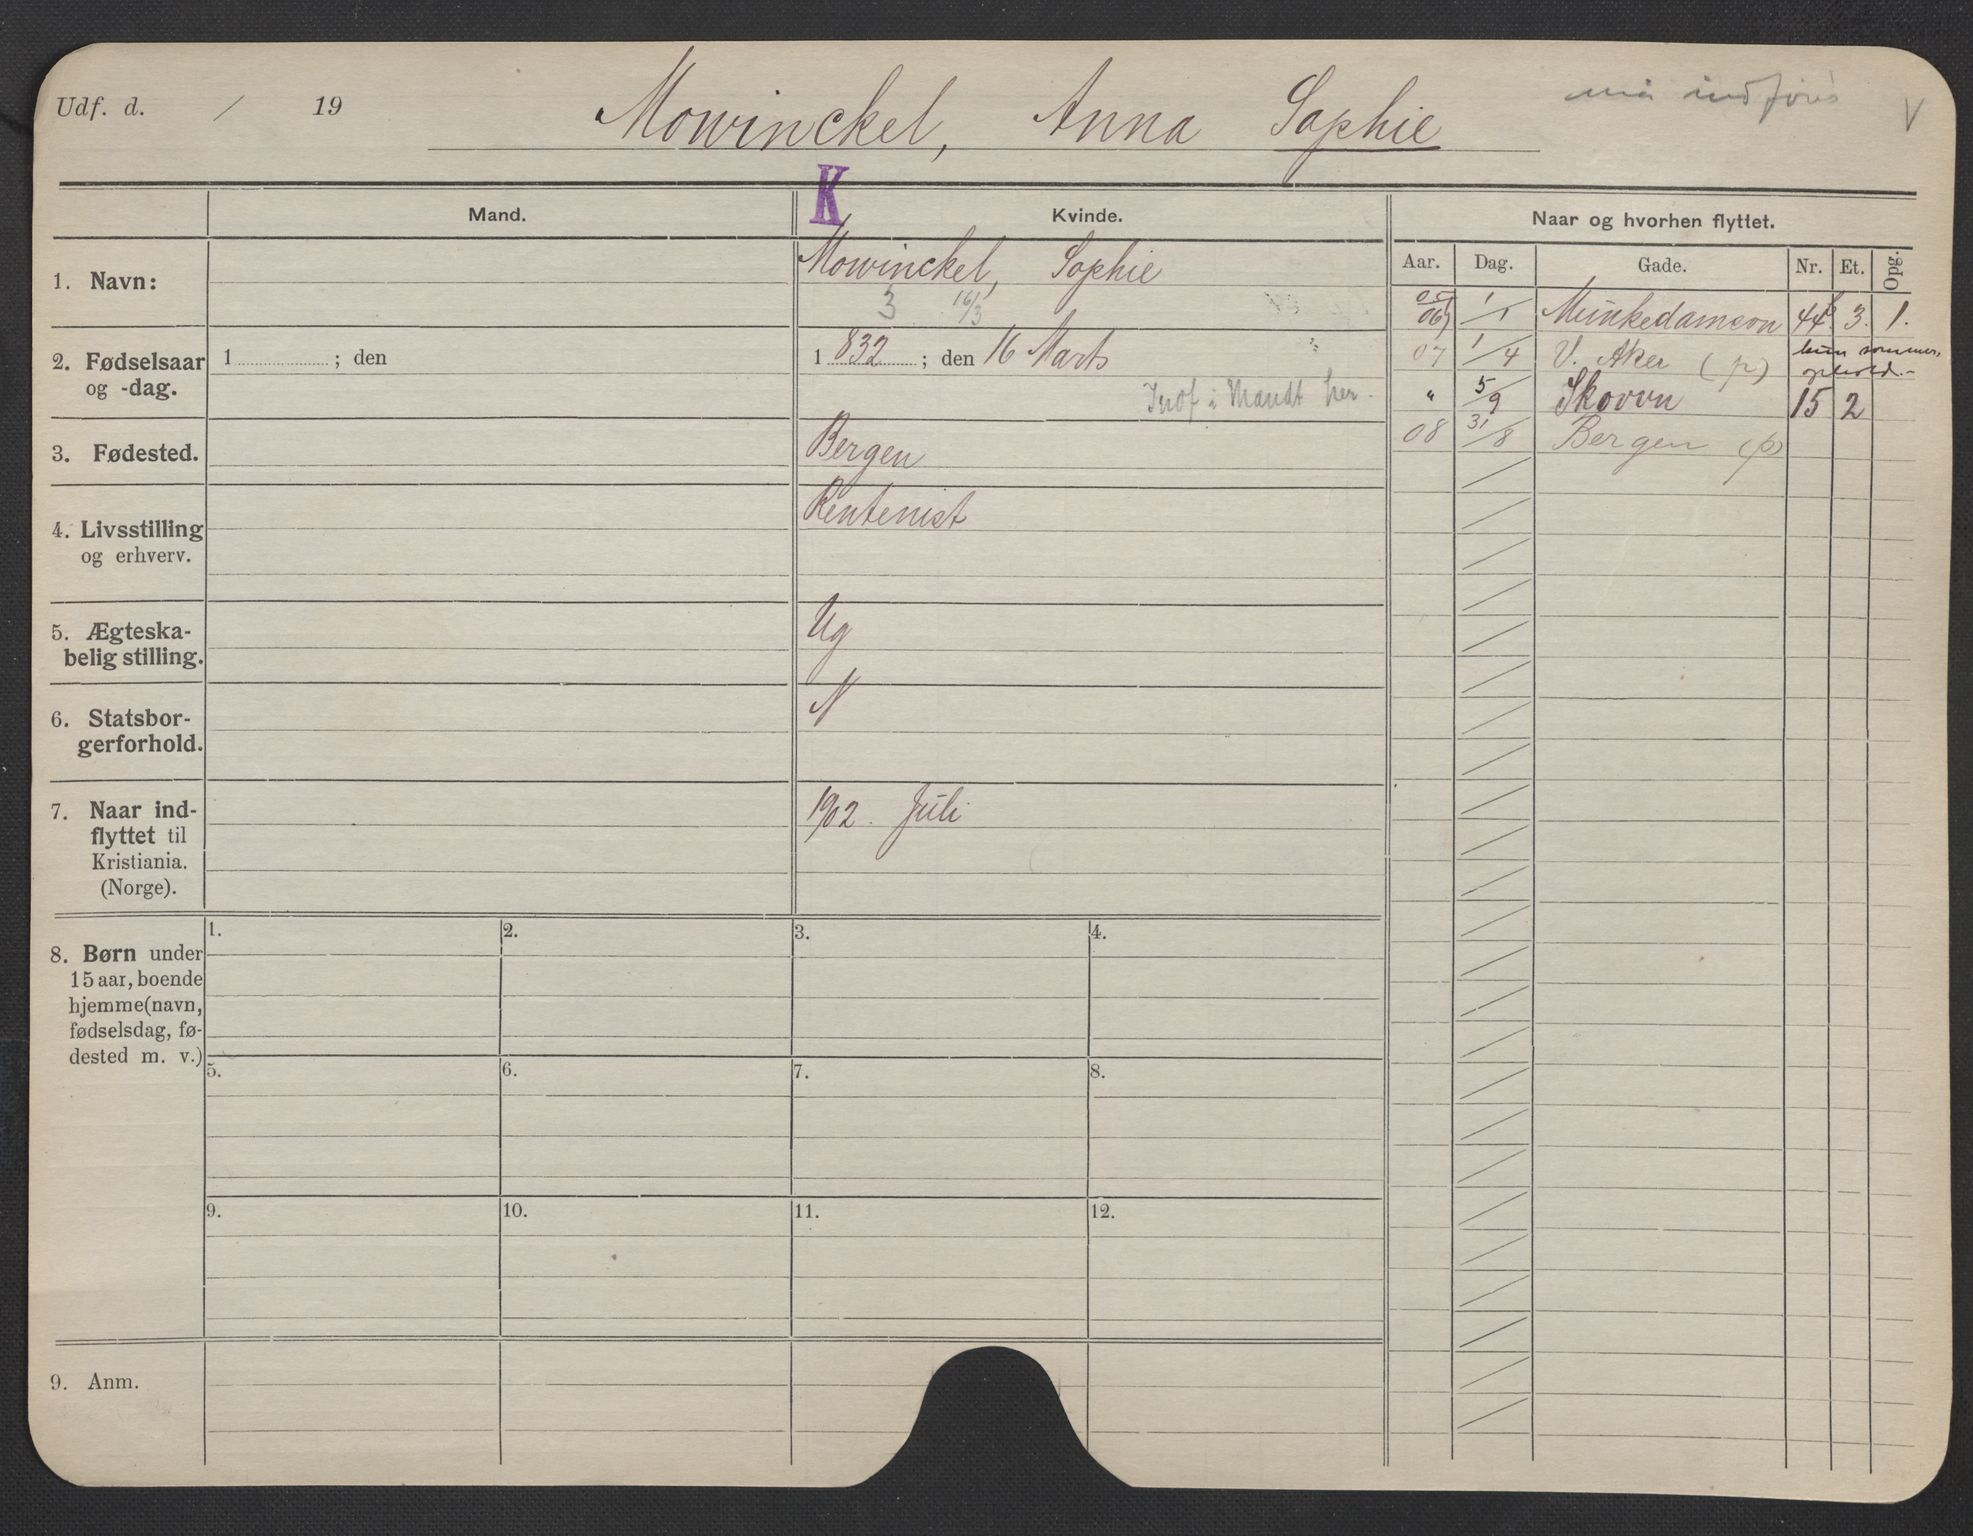 Udf. d. / 19
Mowinckel, Anna Sophie
må indføres
V
K
Mand.
Kvinde.
Naar og hvorhen flyttet.
Aar. Dag. Gade. Nr. Et. Opg.
1. Navn:
Mowinckel, Sophie
3 16/3
2. Fødselsaar og -dag.
1 ; den
1 832 ; den 16 Marts
i Mandt her.
3. Fødested.
Bergen
4. Livsstilling og erhverv.
Rentenist
5. Ægteska-
belig stilling.
Ug
6. Statsbor-
gerforhold.
N
7. Naar ind-
flyttet til
Kristiania.
(Norge).
1902. Juli
05/06 1/1 Munkedamsvn 44b. 3. 1.
07 1/4 V. Aker (p) kun sommer-
ophold.-
" 5/9 Skovvn 15 2
08 31/8 Bergen (p)
8. Børn under
15 aar, boende
hjemme (navn,
fødselsdag, fø-
dested m. v.)
1. 2. 3. 4.
5. 6. 7. 8.
9. 10. 11. 12.
9. Anm.